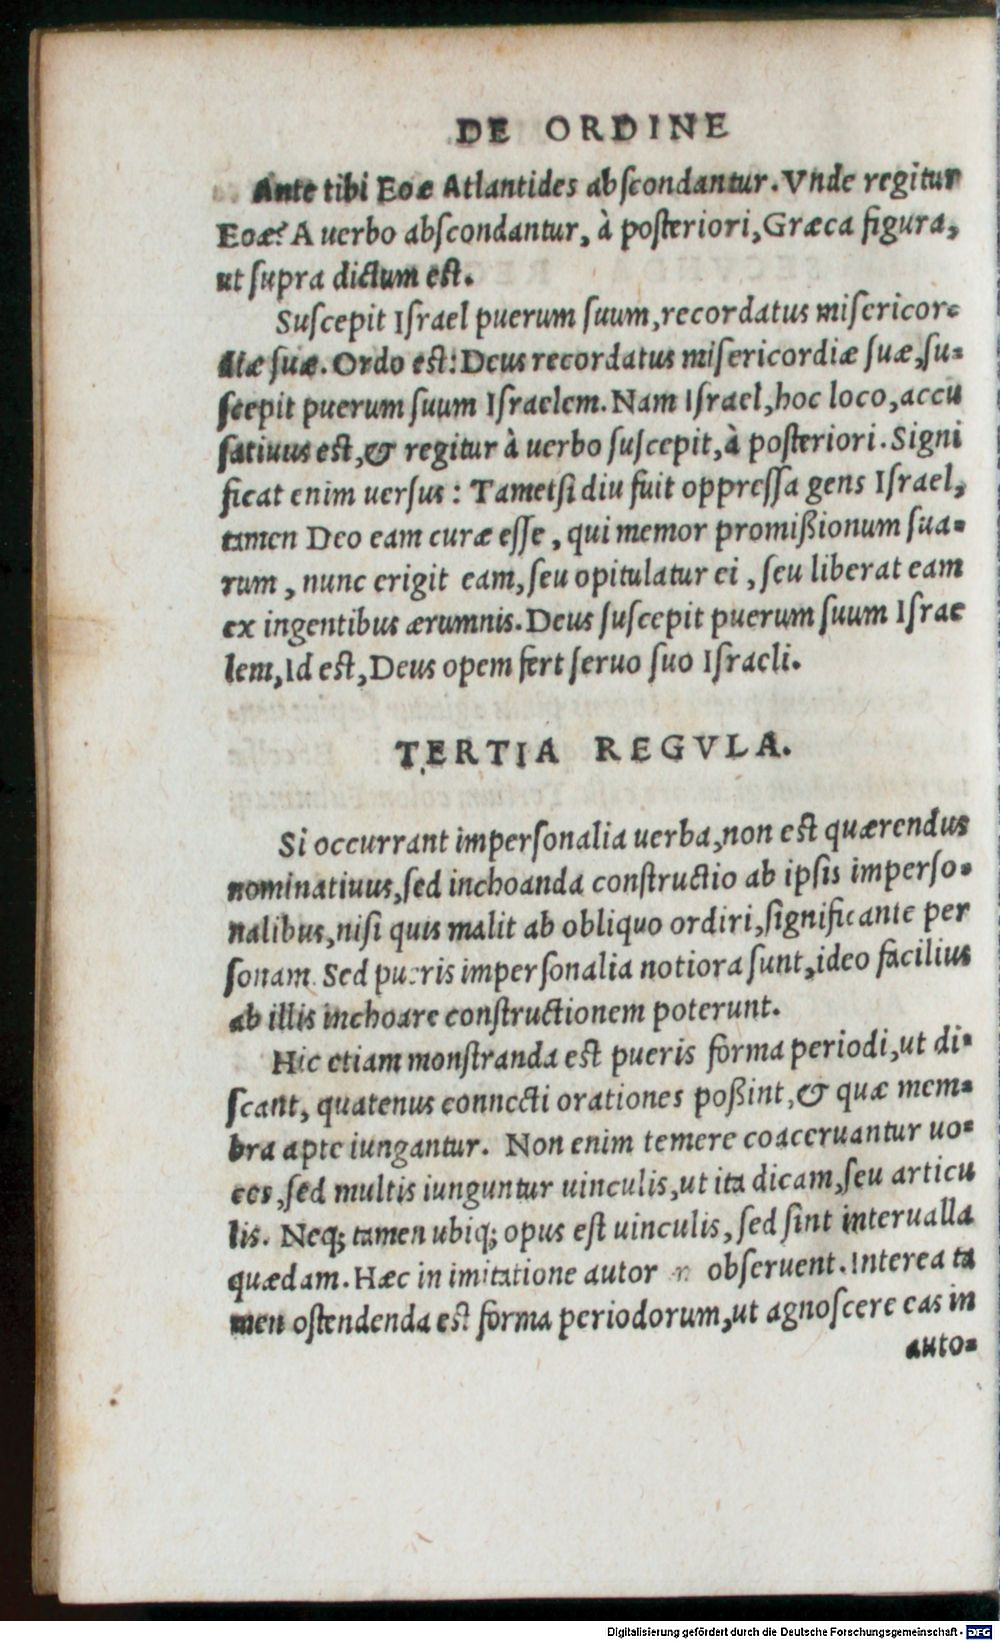 DE ORDINE
Ante tibi Eoæ Atlantides abſcondantur. Vnde regitur
Eoæ? A uerbo abſcondantur, à poſteriori, Græca figura,
ut ſupra dictum eſt.
Suſcepit Iſrael puerum ſuum, recordatus miſericor-
diæ ſuæ. Ordo eſt: Deus recordatus miſericordiæ ſuæ, ſu-
ſcepit puerum ſuum Iſraelem. Nam Iſrael, hoc loco, accu
ſatiuus eſt, & regitur à uerbo ſuſcepit, à poſteriori. Signi
ficat enim uerſus: Tametſi diu fuit oppreſſa gens Iſrael,
tamen Deo eam curæ eſſe, qui memor promißionum ſua-
rum, nunc erigit eam, ſeu opitulatur ei, ſeu liberat eam
ex ingentibus ærumnis. Deus ſuſcepit puerum ſuum Iſrae
lem, Id eſt, Deus opem fert ſeruo ſuo Iſraeli.
TERTIA REGVLA.
Si occurrant imperſonalia uerba, non eſt quærendus
nominatiuus, ſed inchoanda conſtructio ab ipſis imperſo-
nalibus, niſi quis malit ab obliquo ordiri, ſignificante per
ſonam. Sed pueris imperſonalia notiora ſunt, ideo facilius
ab illis inchoare conſtructionem poterunt.
Hic etiam monſtranda eſt pueris forma periodi, ut di-
ſcant, quatenus connecti orationes poßint, & quæ mem-
bra apte iungantur. Non enim temere coaceruantur uo-
ces, ſed multis iunguntur uinculis, ut ita dicam, ſeu articu
lis. Neq; tamen ubiq; opus eſt uinculis, ſed ſint interualla
quædam. Hæc in imitatione autor obſeruent. Interea ta
men oſtendenda eſt forma periodorum, ut agnoſcere eas in
auto-
Digitalisierung gefördert durch die Deutsche Forschungsgemeinschaft - DFG